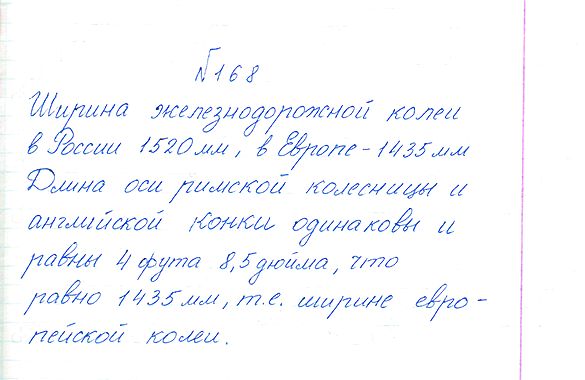 №168
Ширина железнодорожной колеи
в России 1520 мм, в Европе - 1435 мм
Длина оси римской колесницы и
английской конки одинаковы и
равны 4 фута 8,5 дюйма, что
равно 1435 мм, т.е. ширине евро-
пейской колеи.